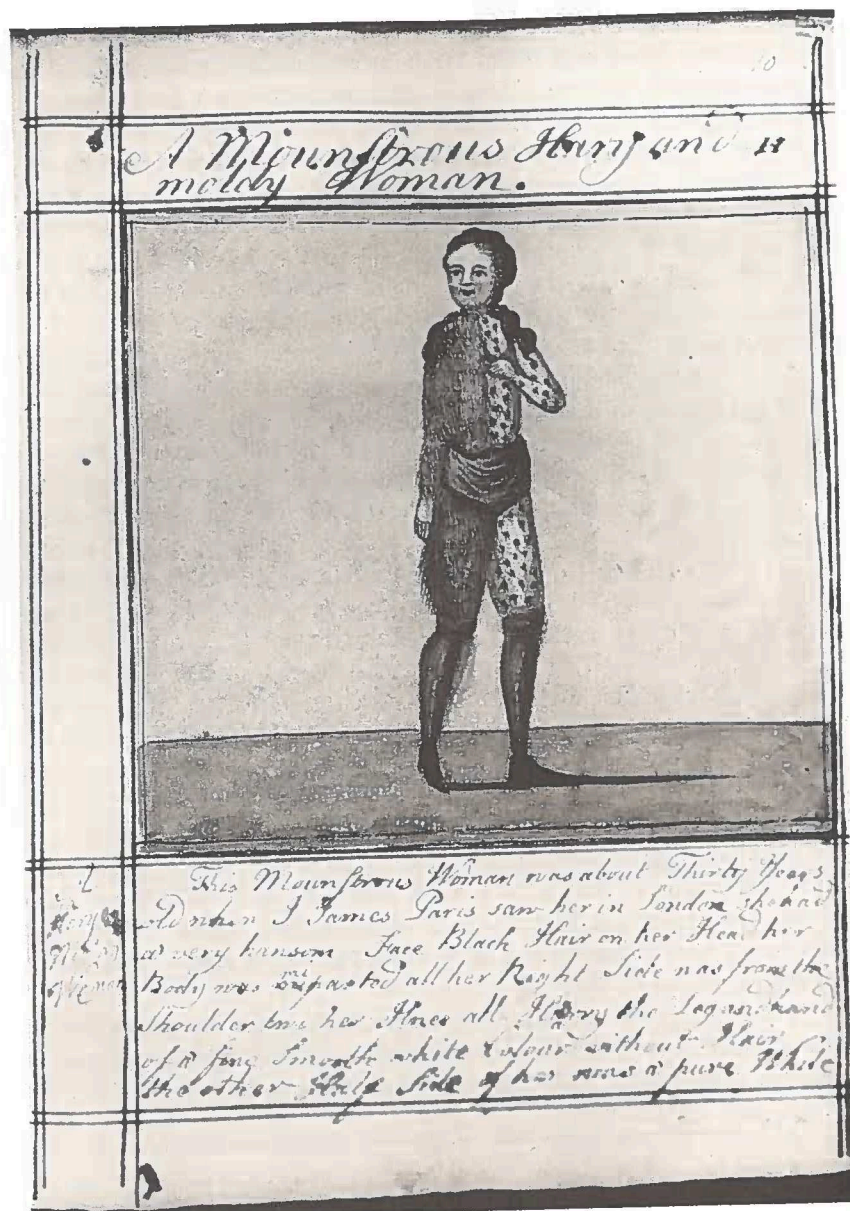 10
A Mounstrous Hary and
moldy Woman.
This Mounstrous Woman was about Thirty Years
old when I James Paris saw her in London she had
a very hansom Face Black Hair on her Head her
Body was parted all her Right Side was from the
Shoulder two her Knes all Harry the Leg and hand
of a fine Smooth white Colour without Hair
the other Half Side of her was a pure White